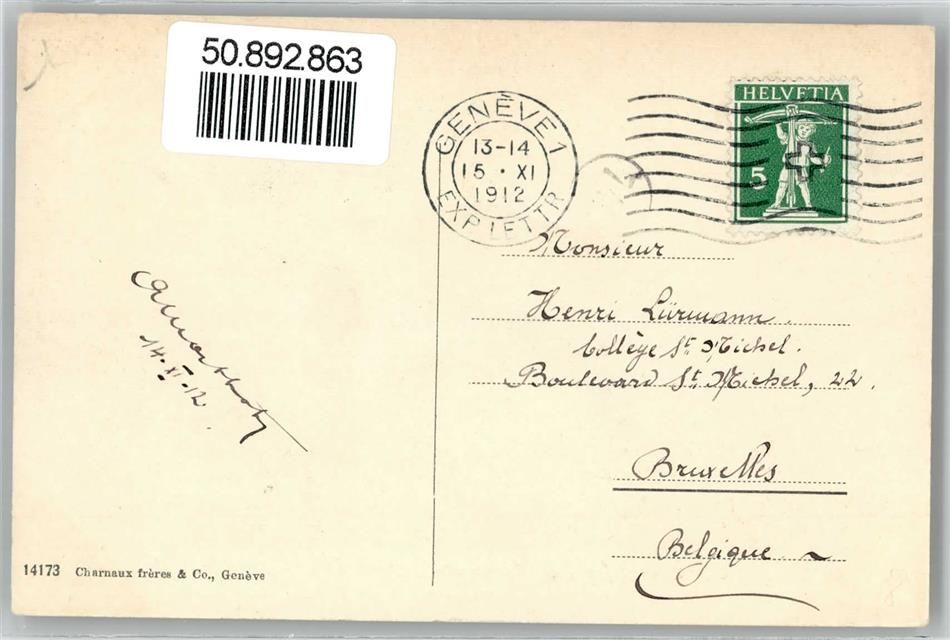 50.892.863
GENÈVE 1
13-14
15 · XI
1912
EXP. LETTR
HELVETIA
5
Monsieur
Henri Lürmann.
Collège St. Michel.
Boulevard St. Michel, 22.
Bruxelles
Belgique
14·XI·12.
14173 Charnaux frères & Co., Genève